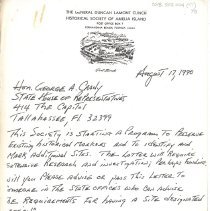 THE GENERAL DUNCAN LAMONT CLINCH
HISTORICAL SOCIETY OF AMELIA ISLAND
POST OFFICE BOX 7
FERNANDINA BEACH, FLORIDA 32034
August 17, 1990
Hon. George A
State House of Representatives
414 The Capitol
Tallahassee, FL 32399
This Society is starting a program to preserve
existing historical markers and to identify and
mark additional sites. The latter will require
extensive research and investigation. Perhaps funding.
Will you please advise or pass this letter to
someone in the State offices who can advise
the requirements for having a site designated